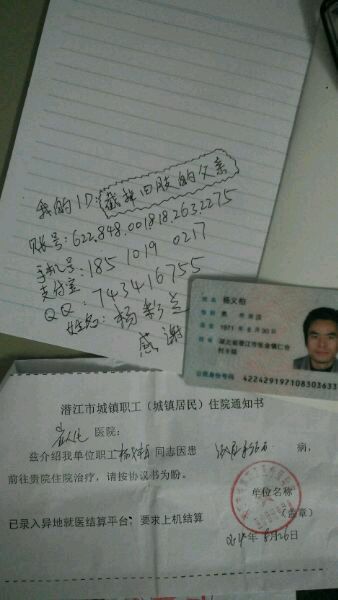 我的ID:截掉四肢的父亲
账号:622.848.001818.2632275
手机号:185 1019 0217
支付宝
QQ:743416755
姓名:杨彩兰
感谢
姓名 杨义柏
性别 男 民族 汉
出生 1971年8月30日
住址 湖北省潜江市张金镇仁合村
公民身份号码 422429197108303633
潜江市城镇职工(城镇居民)住院通知书
医院:
兹介绍我单位职工 同志因患 病,
前往贵院住院治疗,请按协议书为盼。
单位名称
(盖章)
已录入异地就医结算平台,要求上机结算
年8月26日